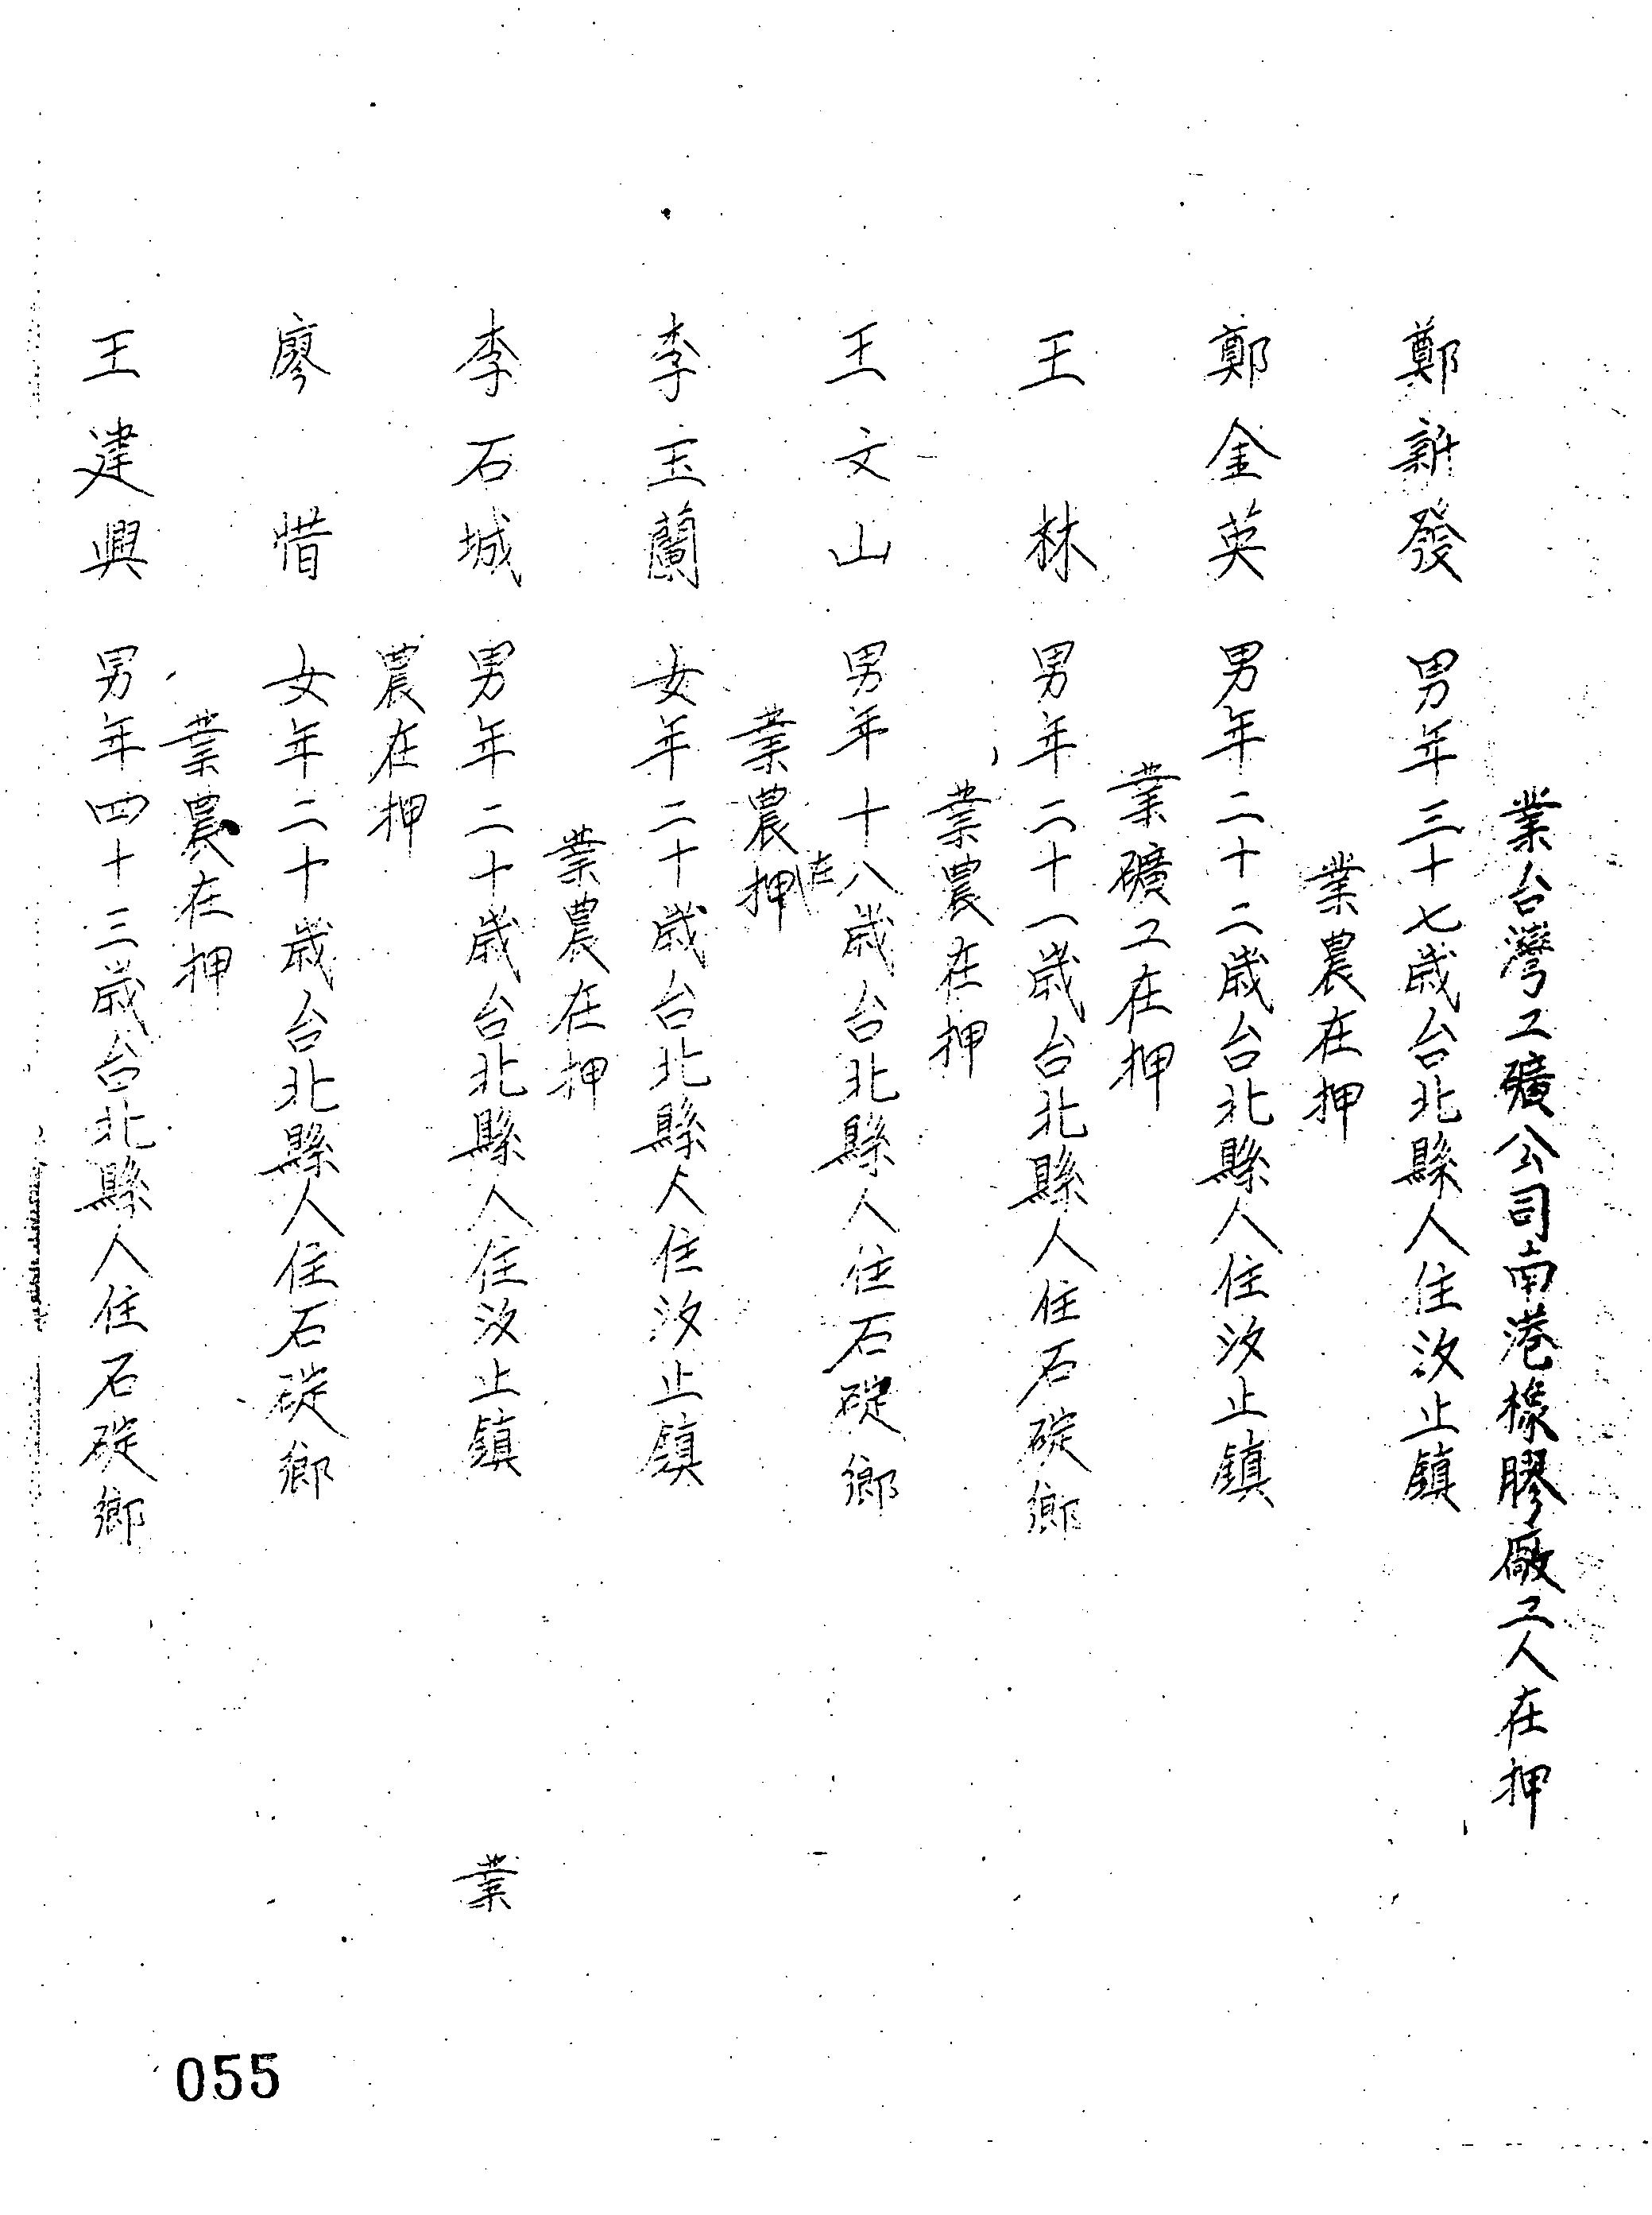 業台灣工礦公司南港橡膠廠工人在押
鄭新發男年三十七歲台北縣人住汐止鎮
業農在押
鄭金英男年二十二歲台北縣人住汐止鎮
業礦工在押
王林男年二十一歲台北縣人住石碇鄉
業農在押
王文山男年十八歲台北縣人住石碇鄉
業農在押
李玉蘭女年二十歲台北縣人住汐止鎮
業農在押
李石城男年二十歲台北縣人住汐止鎮業
農在押
廖惜女年二十歲台北縣人住石碇鄉
業農在押
王建興男年四十三歲台北縣人住石碇鄉
055